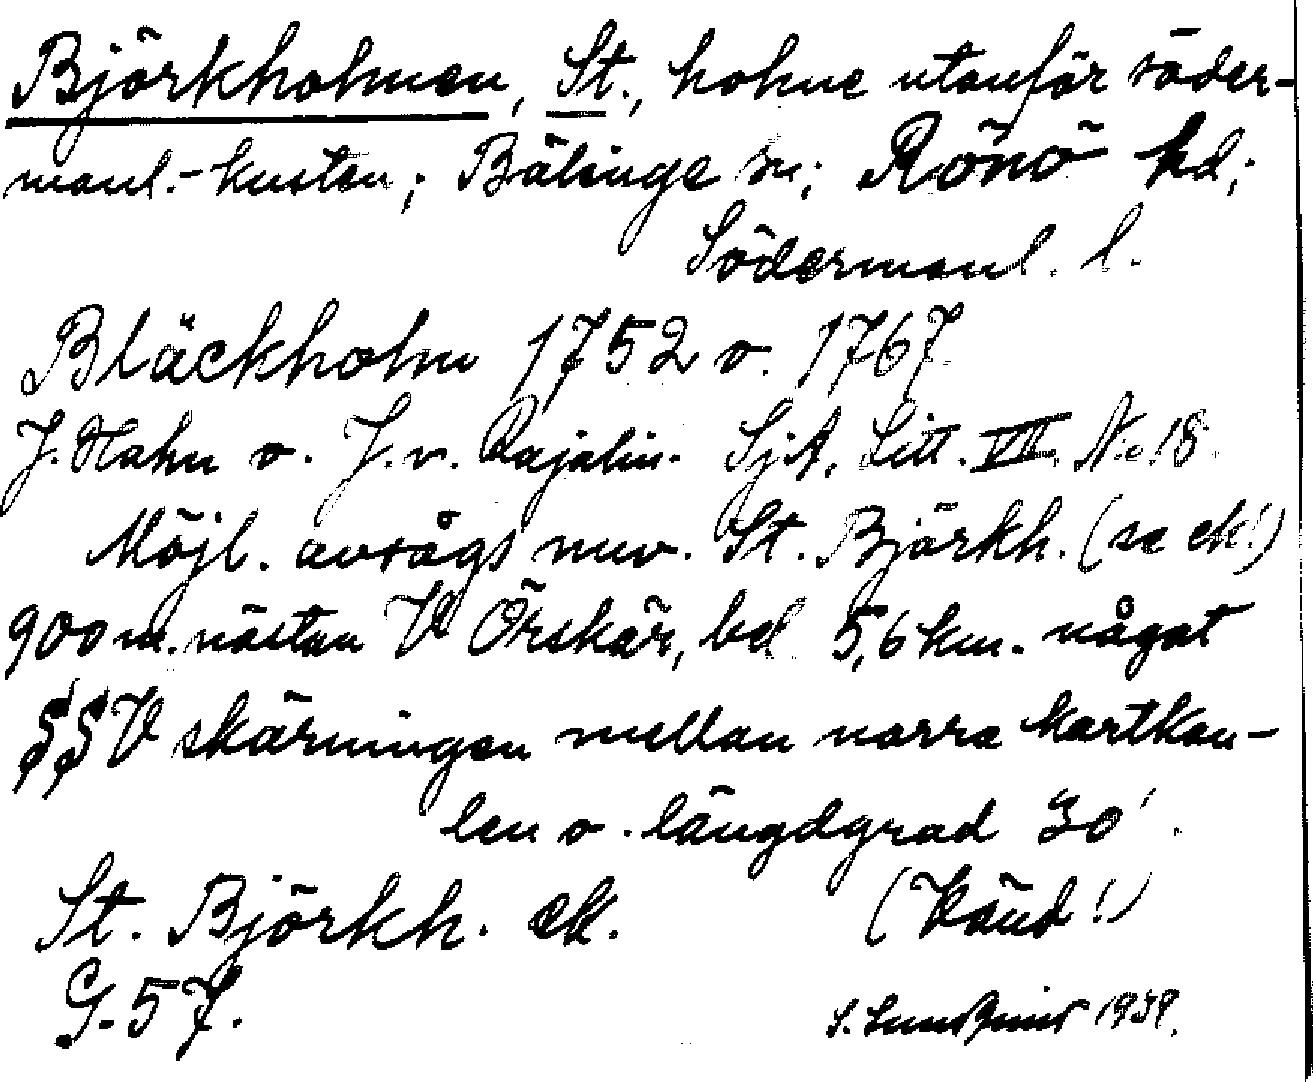 Björkholmen, St., holme utanför söder-
manl.-kusten; Bälinge sn; Rönö hd;
Södermanl. l.
Bläckholm 1752 o. 1767
J. Hahn o. J. v. Rajalin. SjA, Litt. VII, No 18.
Möjl. avsågs nuv. St. Björkh. (se ek!)
900 m. nästan V Örskär, bel. 5,6 km. något
§§V skärningen mellan norra kartkan-
ten o. längdgrad 30'.
St. Björkh. ek. (Känd!)
G. 57.
1939.